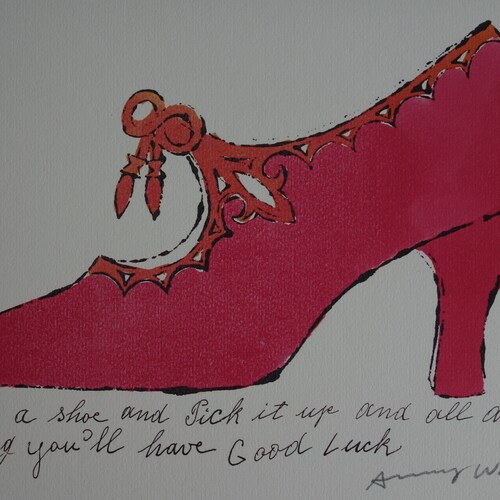 a shoe and Pick it up and all d
g you'll have Good Luck